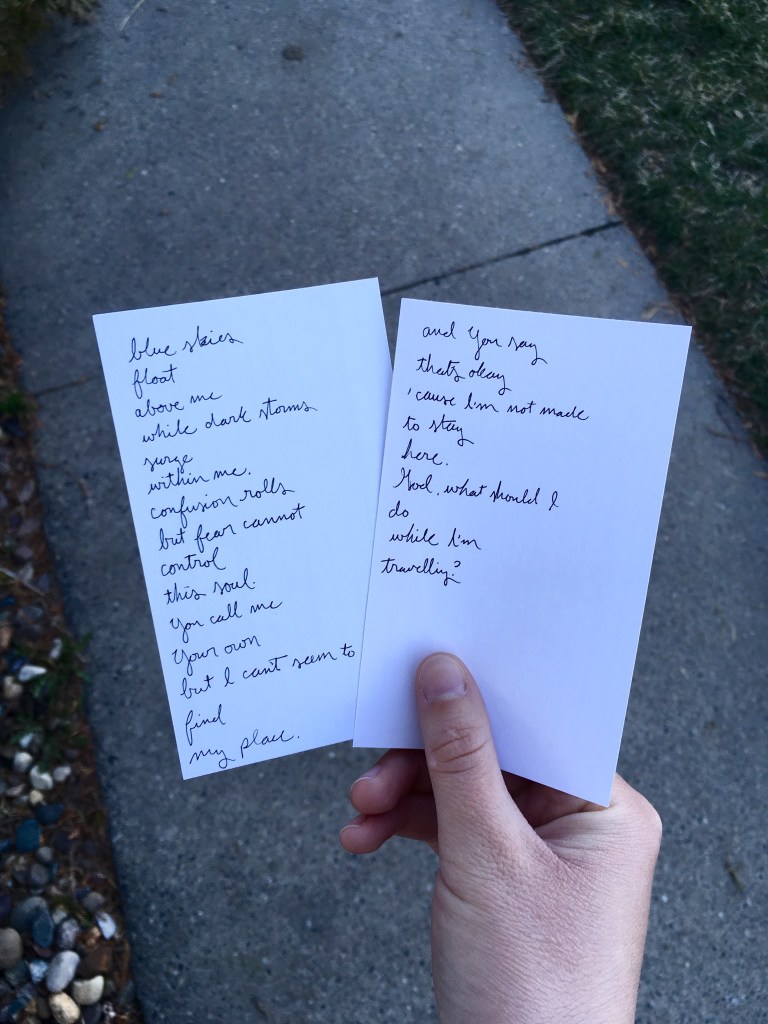 blue skies
float
above me
while dark storms
surge
within me.
confusion rolls
but fear cannot
control
this soul.
You call me
Your own
but I can't seem to
find
my place.
and You say
thats okay
'cause I'm not made
to stay
here.
God, what should I
do
while I'm
travelling?